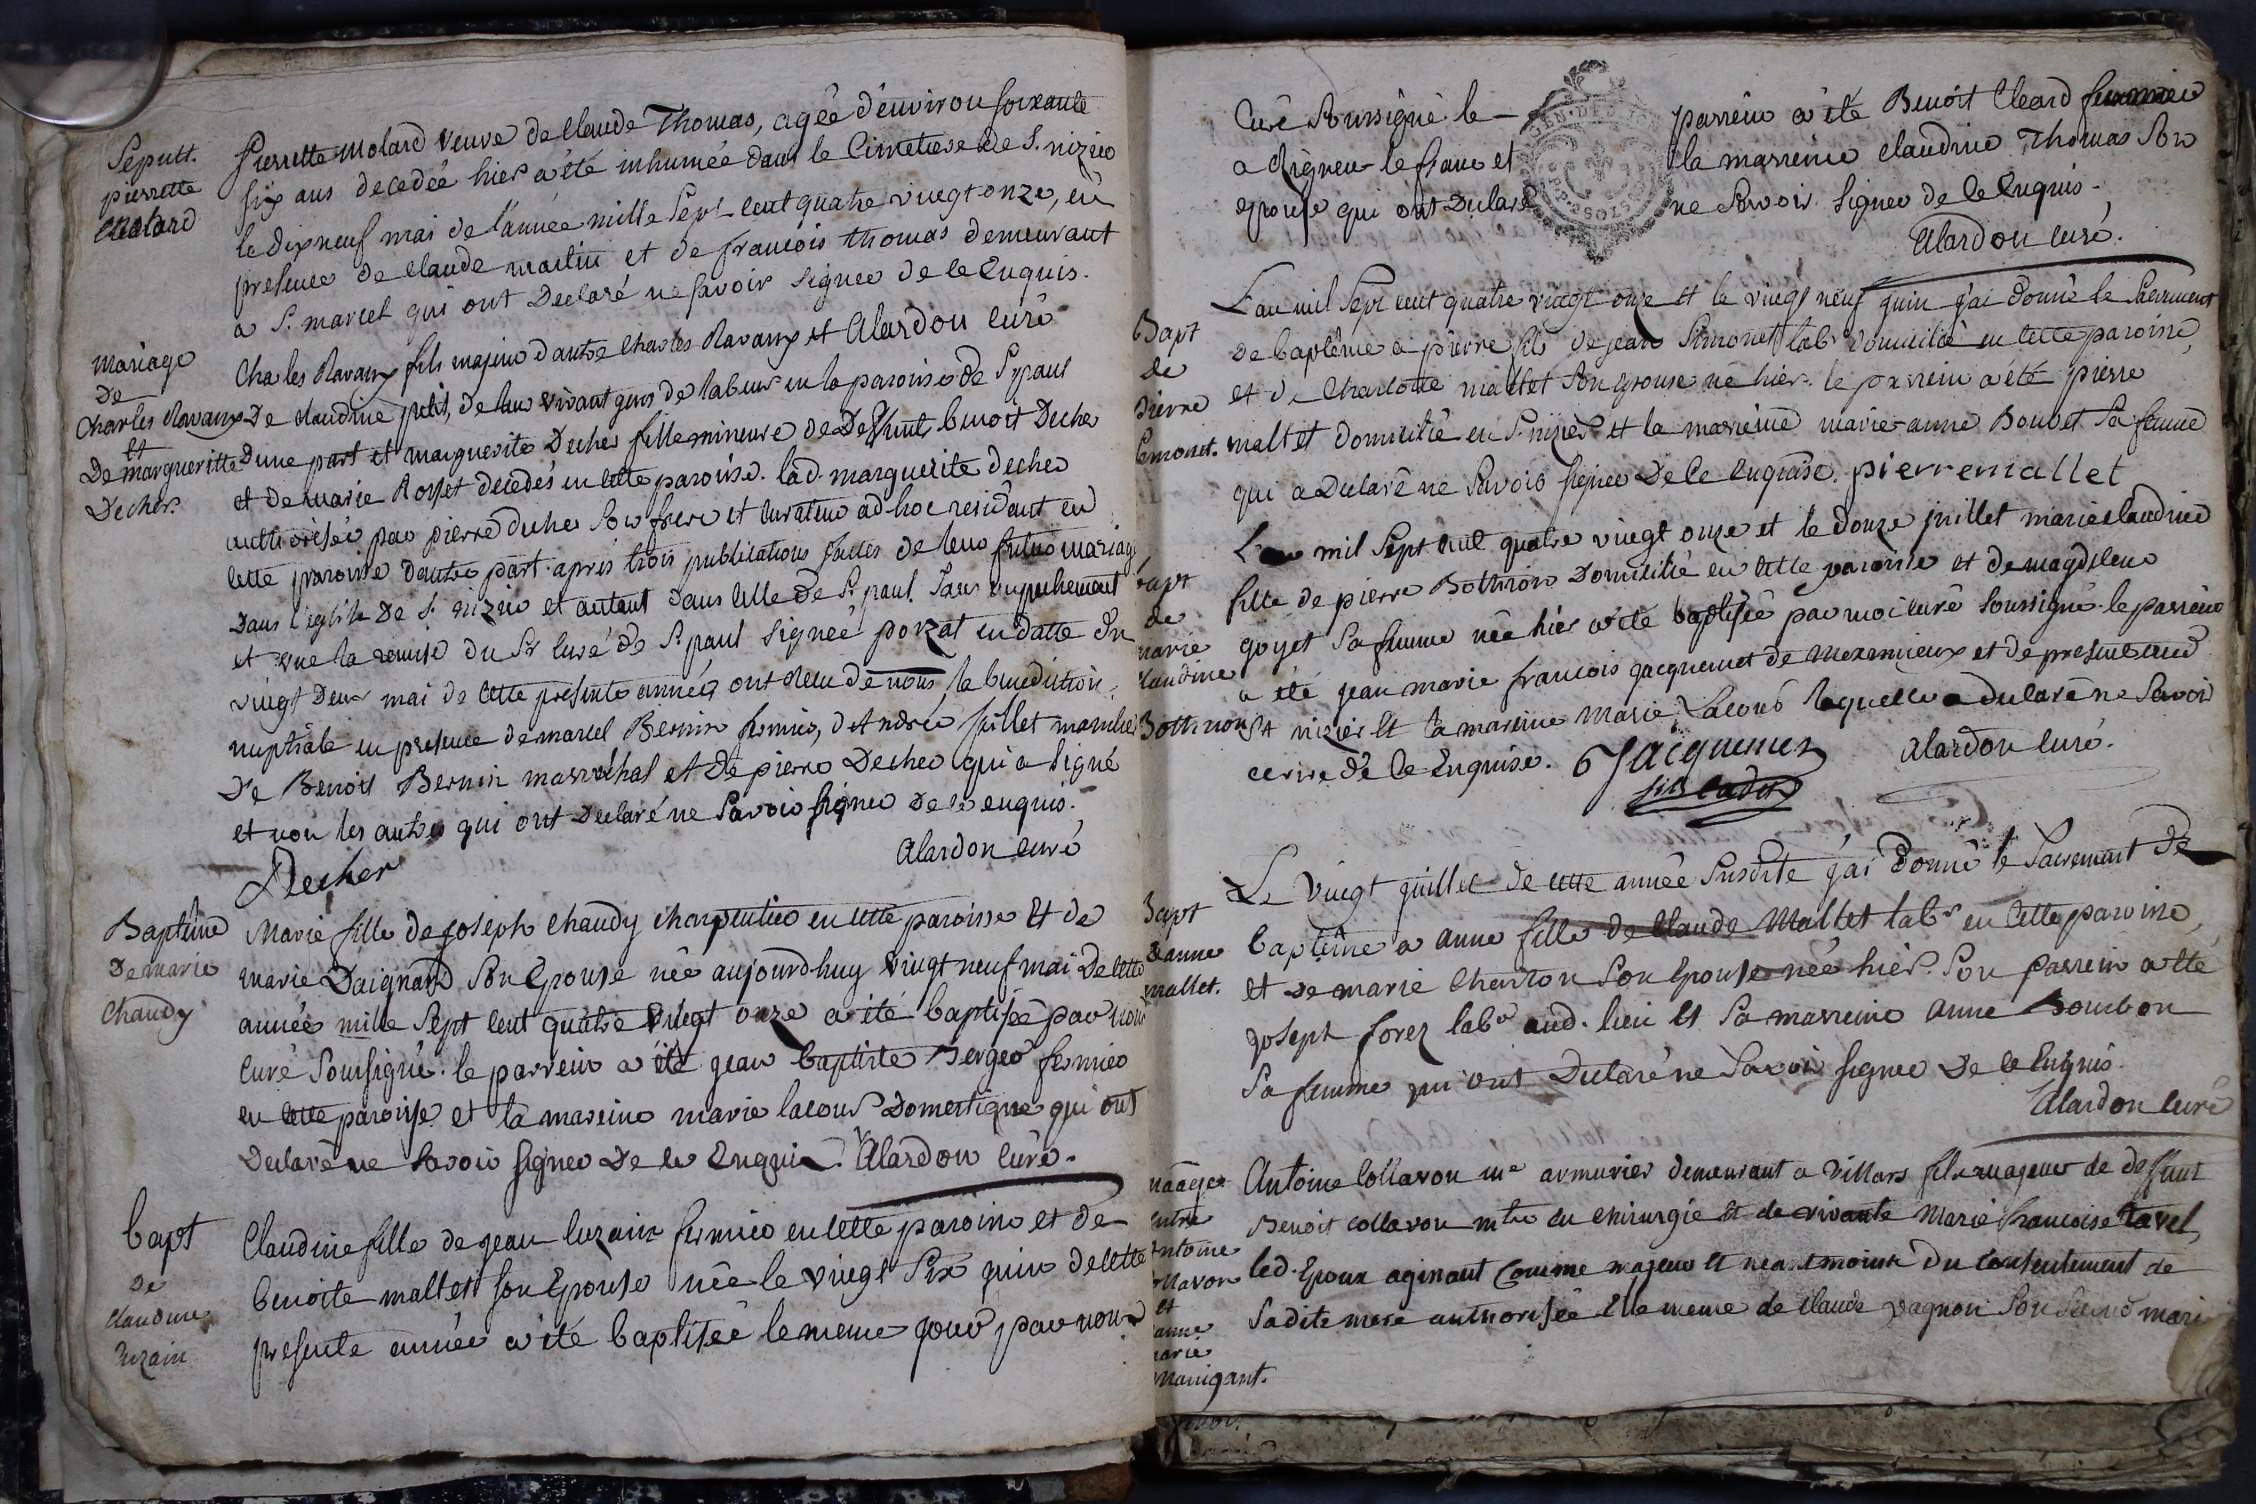 Sepult.
pierrette
Molard
Pierrette Molard veuve de Claude Thomas, agée d'environ soixante
six ans decedée hier a été inhumée dans le Cimetiere de S. nizier
le dixneuf mai de l'année mille Sept cent quatre vingt onze, en
presence de Claude martin et de francois thomas demeurant
a S. marcel qui ont Declaré ne savoir signer de ce Enquis.
Alardon curé
mariage
De
Charles Ravaux
et
De margueritte
Decher.
Charles Ravaux fils majeur d'autre Charles Ravaux et
De Claudine petit, de leur vivant gens de labeur en la paroisse de St paul
Dune part et marguerite Decher fille mineure de Deffunts benoit Decher
et de marie Rosset decedés en cette paroisse. lad. marguerite decher
authorisée par pierre decher son frere et curateur ad hoc residant en
cette paroisse d'autre part. après trois publications faites de leur futur mariage
Dans l'eglise De S. nizier et autant dans celle de St paul sans empechement
et vue la remise du Sr curé de St paul signée porzat en datte du
vingt Deux mai de cette presente année, ont recu de nous la benediction
nuptiale en presence de marcel Bernin fermier, d'Andrée juillet
De Benoit Bernin marréchal et de pierre Decher qui a signé
et non les autres qui ont Declaré ne Savoir signer De ce enquis.
Alardon curé
Decher
Baptême
De marie
Chaudy
Marie fille de joseph Chaudy charpentier en cette paroisse Et de
marie Daignard Son Epouse née aujourd'huy vingt neuf mai De cette
année mille Sept cent quatre vingt onze a été baptisée par nous
Curé Soussigné. le parrein a été jean baptiste Berger fermier
en cette paroisse et la mareine marie lacour Domestique qui ont
Declaré ne Savoir signer De ce Enquis. Alardon curé.
bapt
De
Claudine
Luzain
Claudine fille de jean luzain fermier en cette paroisse et de
benoite mallet son Epouse née le vingt Six juin de cette
presente année a été baptisée le meme jour par nous
Curé Soussigné le parrein a été Benoit Cleard fermier
a Rigneu-le franc et la marreine claudine Thomas Son
epouse qui ont Declaré ne Savoir Signer de ce Enquis.
Alardon curé.
GEN. DE
Bapt
de
Pierre
Simonet.
L'an mil Sept cent quatre vingt onze et le vingt neuf juin j'ai donné le Sacrement
De baptême a pierre fils de jean Simonet labr domicilié en cette paroisse,
et de Charlotte mallet Son epouse né hier. le parrein a été pierre
mallet domicilié en S. nizier et la marreine marie-anne Boubet Sa femme
qui a Declaré ne Savoir signer De ce enquise. pierre mallet
Bapt
de
marie
Claudine
Bothmon
L'an mil Sept cent quatre vingt onze et le douze juillet marie claudine
fille de pierre Bothmon Domicilié en cette paroisse et de magdelene
goyet Sa femme née hier a été baptisée par moi curé Soussigné. le parrein
a été jean marie francois jacquemet de meximieux et de present aud
St nizier Et la mareine Marie Lacour laquelle a declaré ne Savoir
ecrire de ce Enquise. Jacquemet Alardon curé.
fils cadet
Bapt
d'anne
mallet.
Le vingt juillet de cette année Susdite j'ai donné le Sacrement De
baptême a anne fille de Claude Mallet labr en cette paroisse,
et De marie Charron son Epouse née hier. Son Parrein a été
joseph forez labr aud. lieu et Sa marreine anne Bourbon
Sa femme qui ont Declaré ne Savoir signer De ce Enquis.
Alardon curé
mariage
entre
Antoine
Collavon
et
anne
marie
Manigant.
Antoine Collavon me armurier demeurant a Villars fils majeur de deffunt
Benoit collavon mtre en chirurgie Et de vivante Marie francoise Ravel,
led. Epoux agissant Comme majeur Et neantmoins du Consentement de
Sadite mere authorisée Elle meme de Claude vagnon Son Second mari